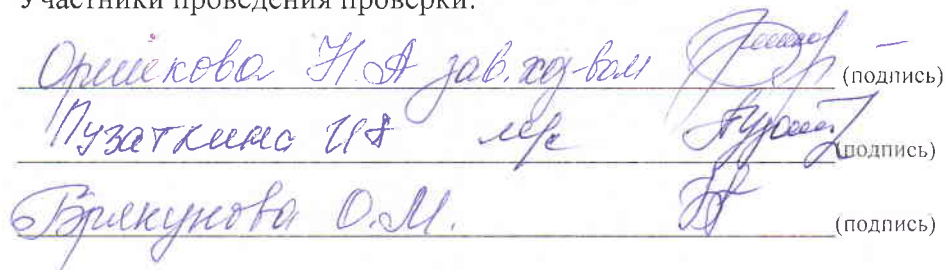 Участники проведения проверки:
Н.А зав.хоз-вом (подпись)
Пузаткина (подпись)
Брякунова О.М. (подпись)